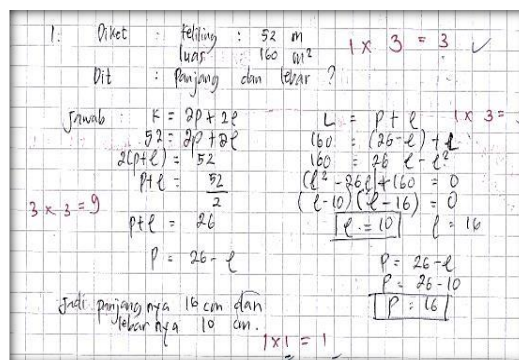 1. Diket : keliling : 52 m
luas : 160 m²
1 x 3 = 3 ✓
Dit : Panjang dan lebar ?
Jawab : K = 2p + 2l
52 = 2p + 2l
2(p+l) = 52
p+l = 52/2
3 x 3 = 9
p+l = 26
p = 26 - l
L = p + l
1 x 3 =
160 = (26-l) + l
160 = 26 l - l²
(l² - 26l) + 160 = 0
(l-10) (l-16) = 0
l = 10 l = 16
P = 26-l
P = 26-10
P = 16
Jadi panjang nya 16 cm dan
lebar nya 10 cm.
1 x 1 = 1